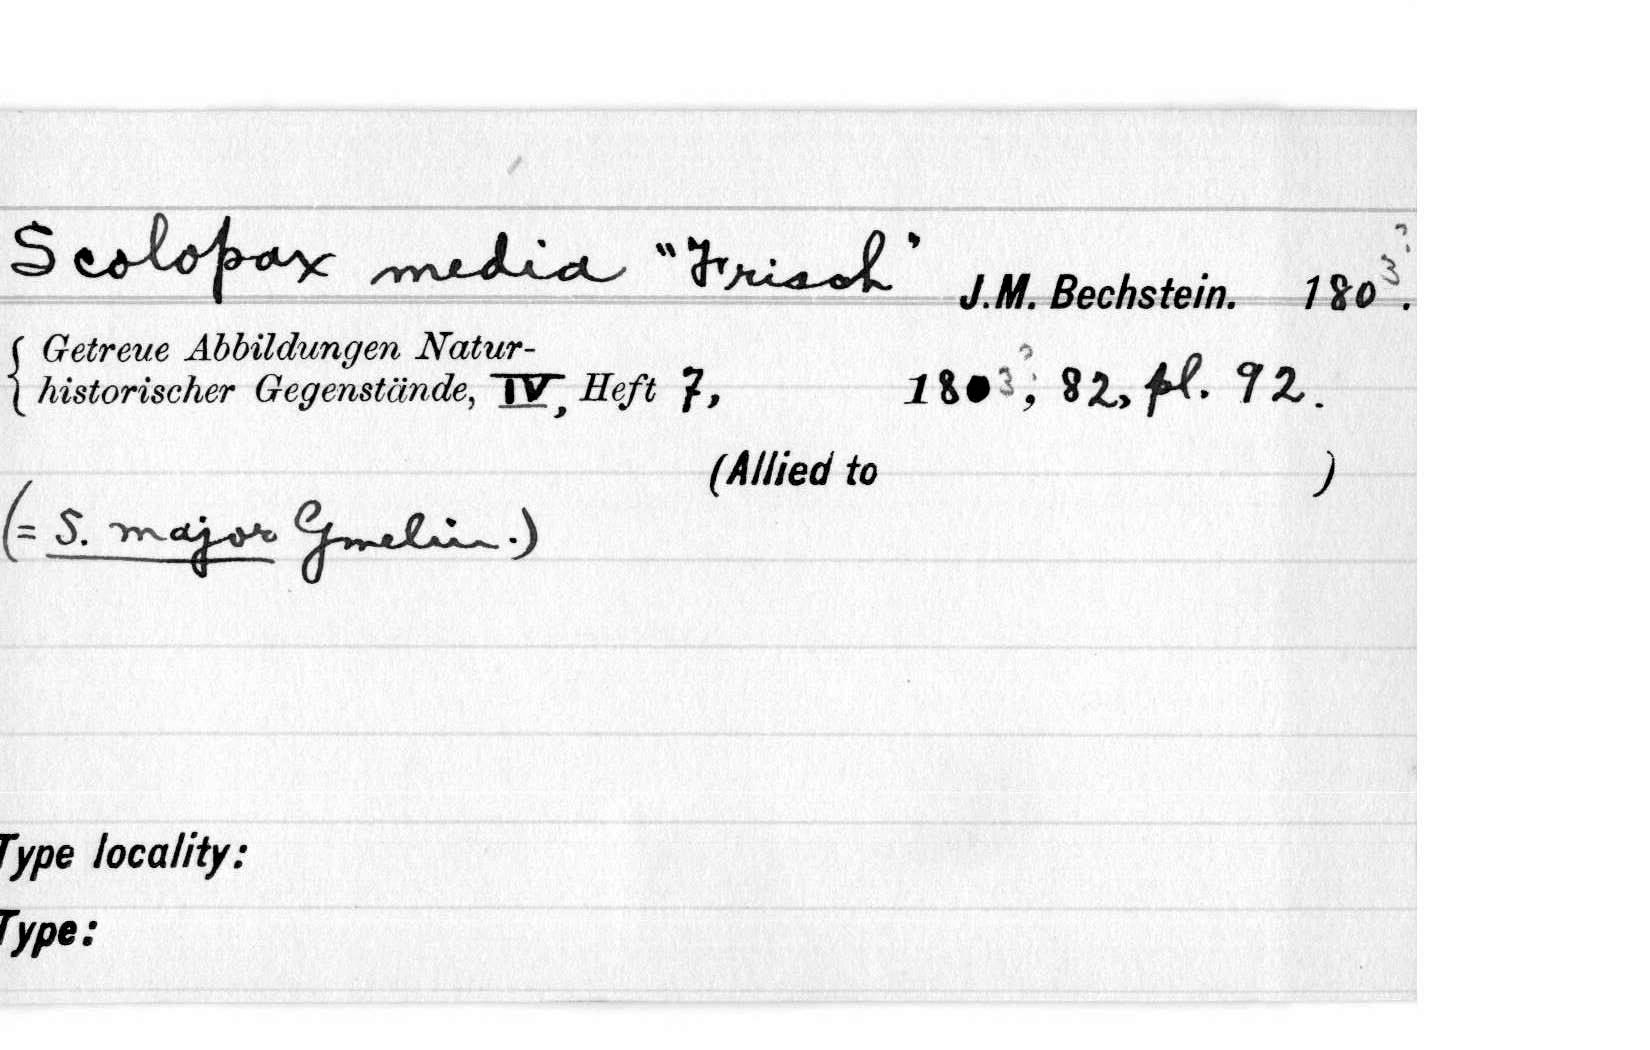 Scolopax media "Frisch" J.M. Bechstein. 1803?.
Getreue Abbildungen Natur-
historischer Gegenstände, IV, Heft 7, 1803?; 82, pl. 92.
(Allied to )
(= S. major Gmelin.)
Type locality:
Type: